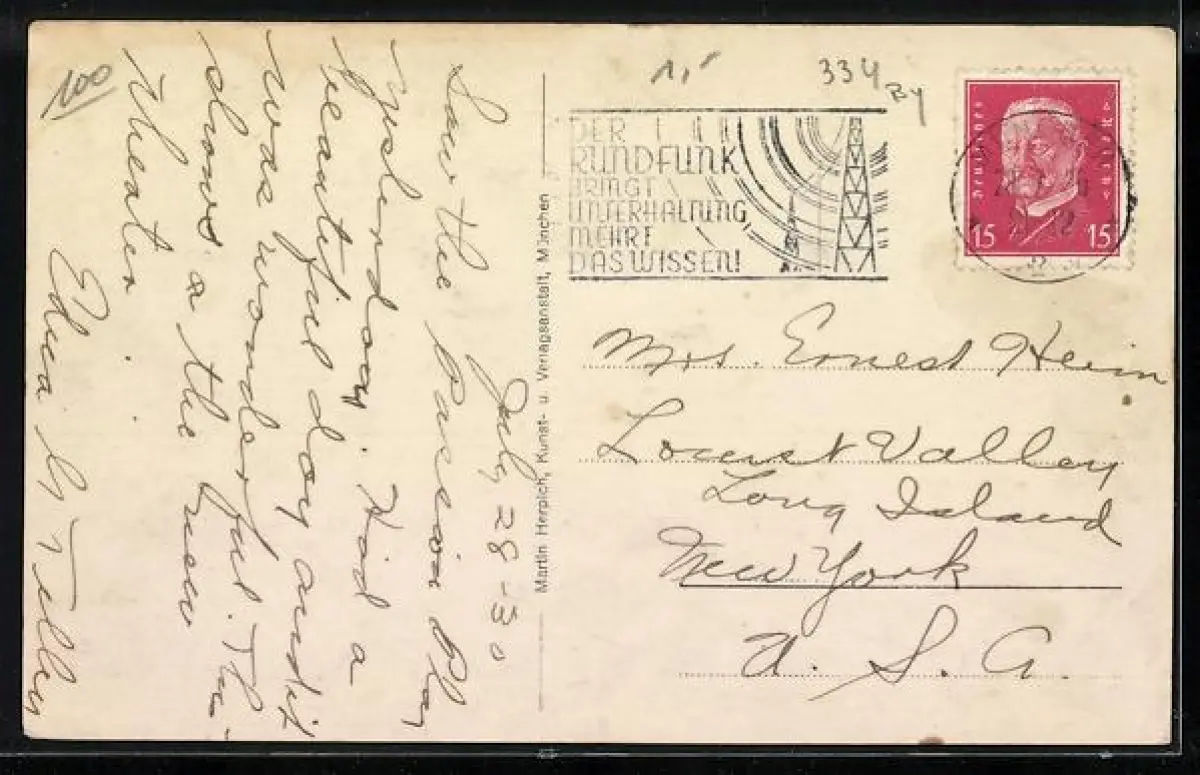 100
July 28-30
Saw the Passion Play
yesterday. Had a
beautiful day and it
was wonderful. This
shows a the new
Theater.
Edna G. Teller
Martin Herpich, Kunst- u. Verlagsanstalt, München
334
DER
RUNDFUNK
BRINGT
UNTERHALTUNG
MEHRT
DAS WISSEN!
Deutsches
Reich
15 15
Mrs. Ernest Heim
Locust Valley
Long Island
New York
U. S. A.